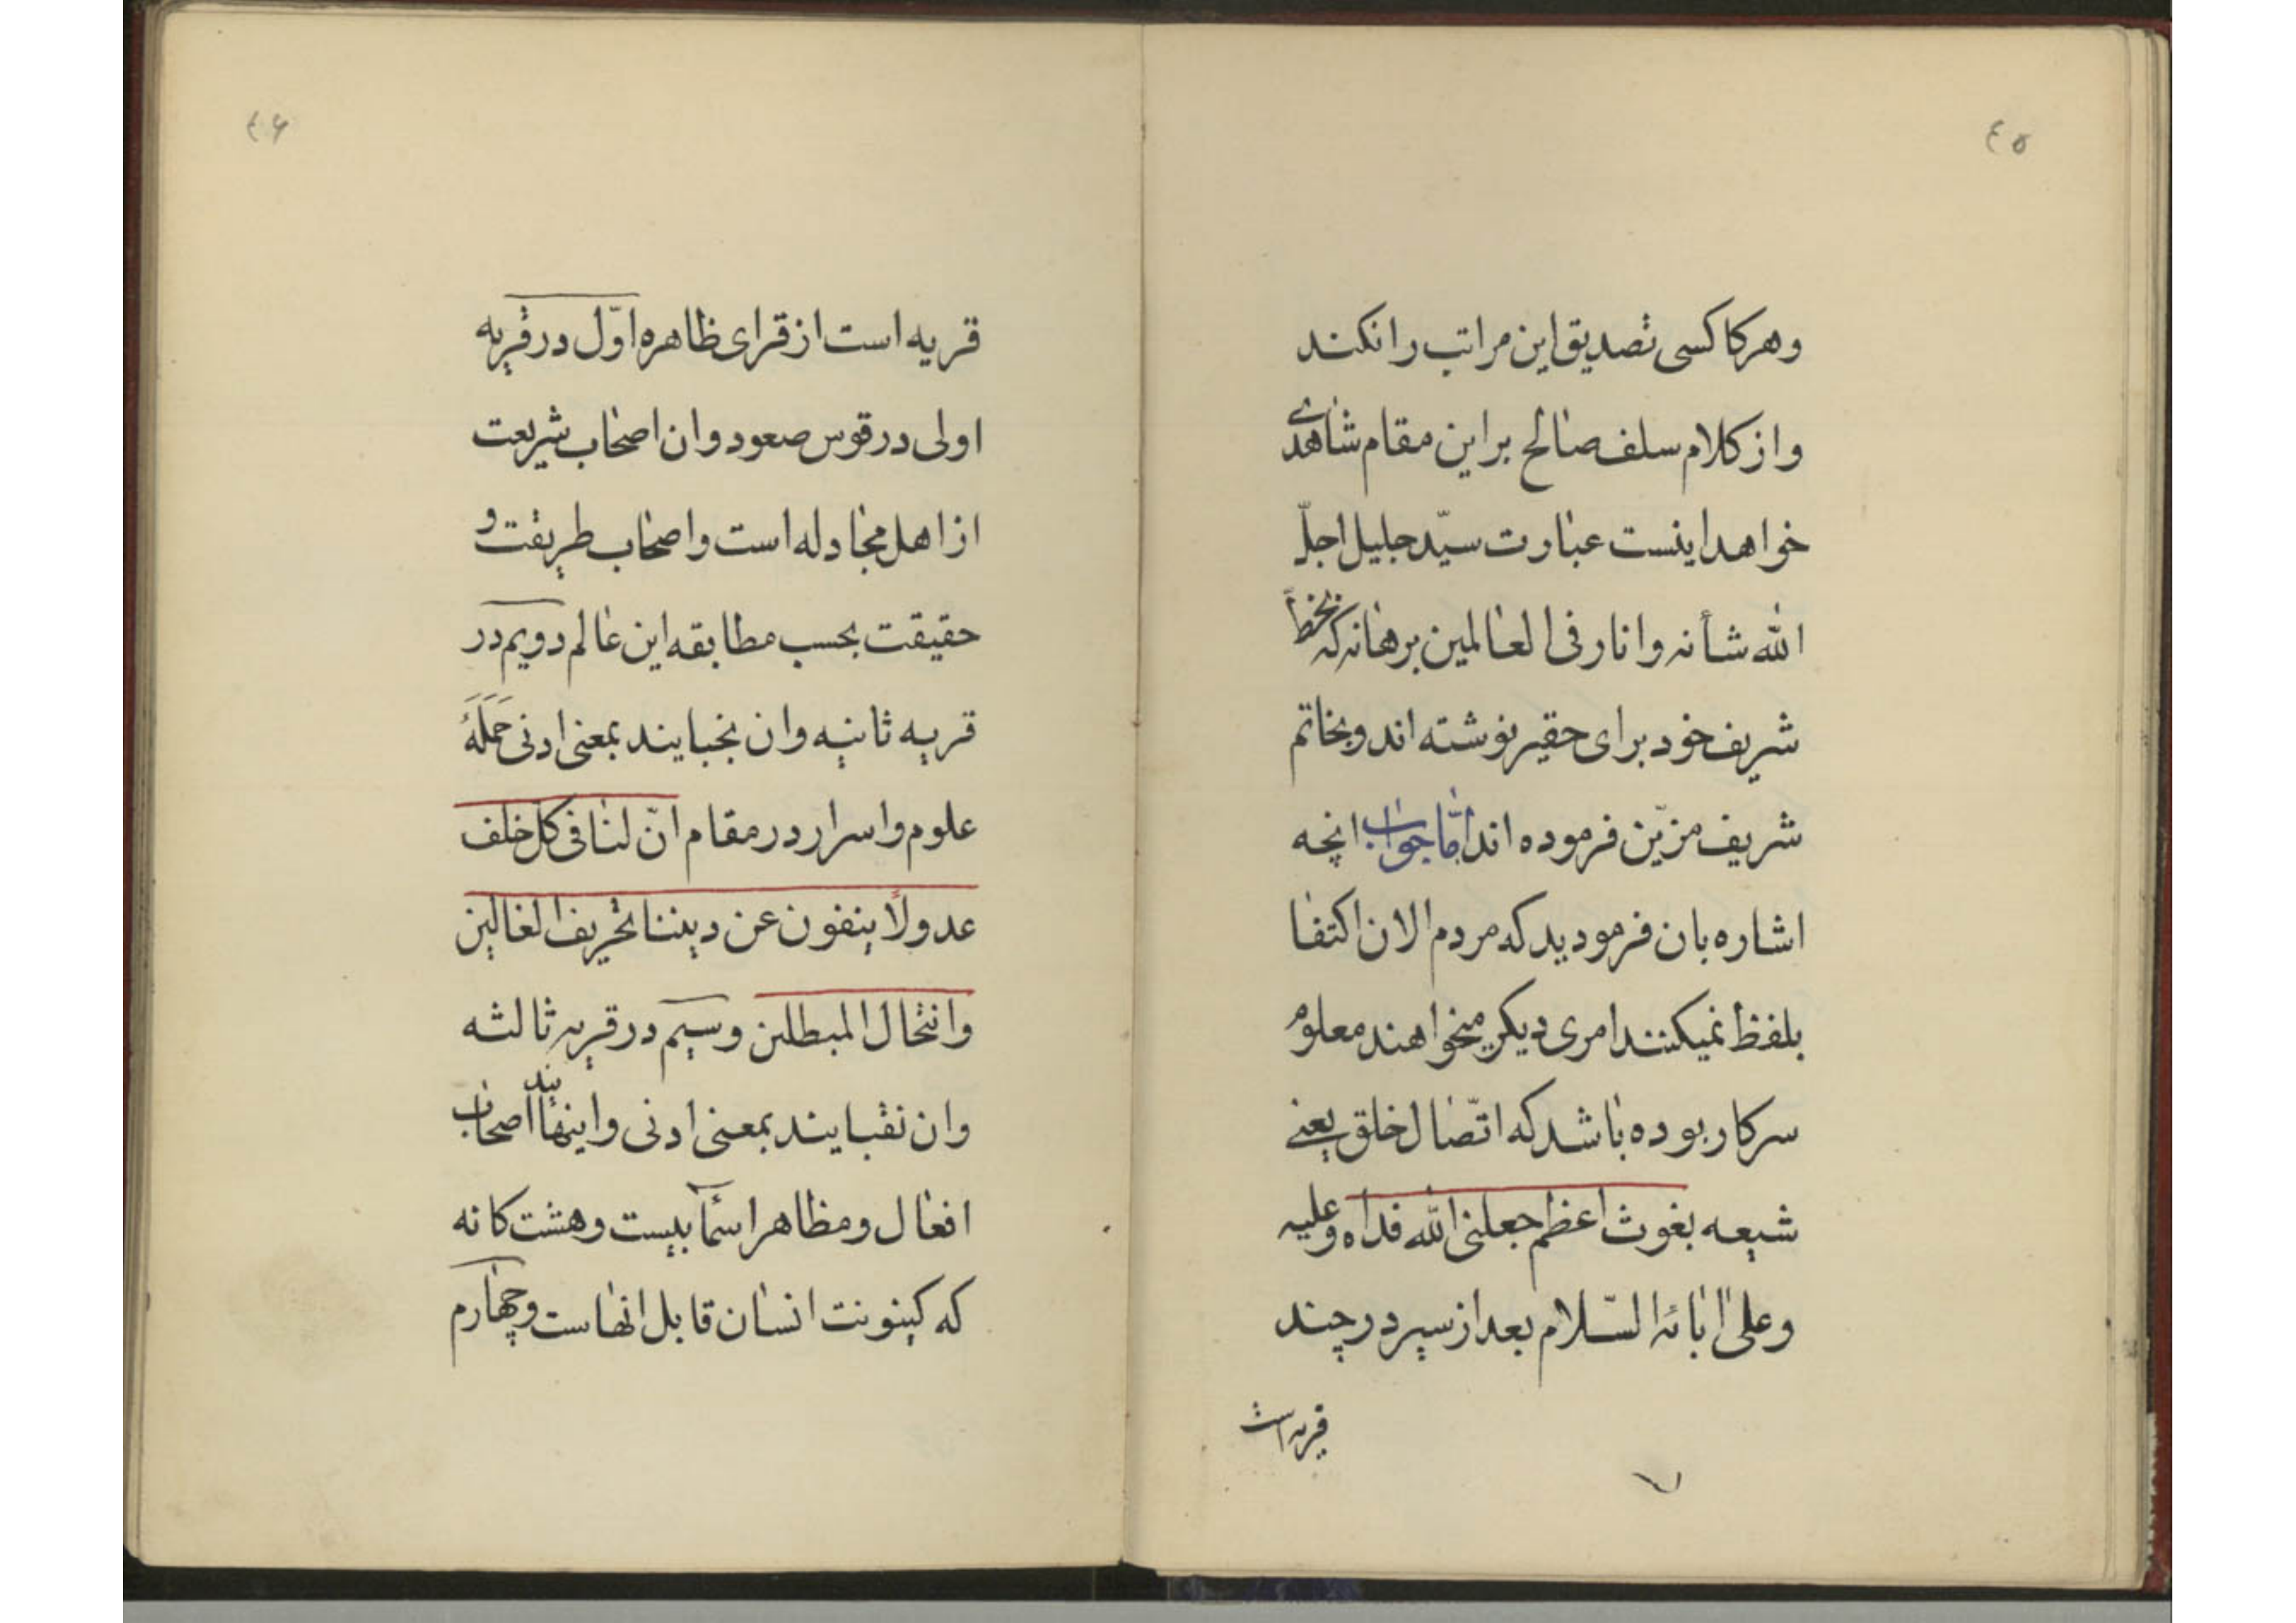 ٤٥
وهرکا کسی تصدیق این مراتب را نکند
و از کلام سلف صالح بر این مقام شاهدی
خواهد اینست عبارت سیّد جلیل اجلّ
اللّه شأنه و انار فی العالمین برهانه که بخط
شریف خود برای حقیر نوشته اند و بخاتم
شریف مزیّن فرموده اند امّا جواب انچه
اشاره بان فرمودید که مردم الان اکتفا
بلفظ نمیکنند امری دیکر میخواهند معلوم
سرکار بوده باشد که اتّصال خلق یعنی
شیعه بغوث اعظم جعلنی اللّه فداه وعلیه
وعلی ابائه السّلام بعد از سیر در چند
قریه است
٤۶
قریه است از قرای ظاهره اوّل در قریه
اولی در قوس صعود و ان اصحاب شریعت
از اهل مجادله است و اصحاب طریقت و
حقیقت بحسب مطابقه این عالم دویم در
قریه ثانیه و ان نجبایند بمعنی ادنی حَمَلَهٔ
علوم و اسرار در مقام انّ لنا فی کل خلف
عدولاً ینفون عن دیننا تحریف الغالین
وانتحال المبطلین وسیم در قریه ثالثه
وان نقبایند بمعنی ادنی و اینها اصحاب
ایند
افعال و مظاهر اسمآ بیست و هشت کانه
که کینونت انسان قابل انهاست و چهارم